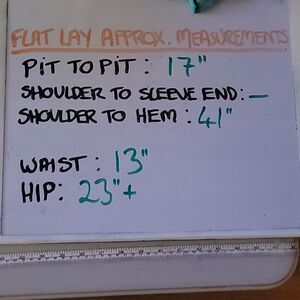 FLAT LAY APPROX. MEASUREMENTS
PIT TO PIT : 17"
SHOULDER TO SLEEVE END: —
SHOULDER TO HEM : 41"
WAIST : 13"
HIP: 23"+